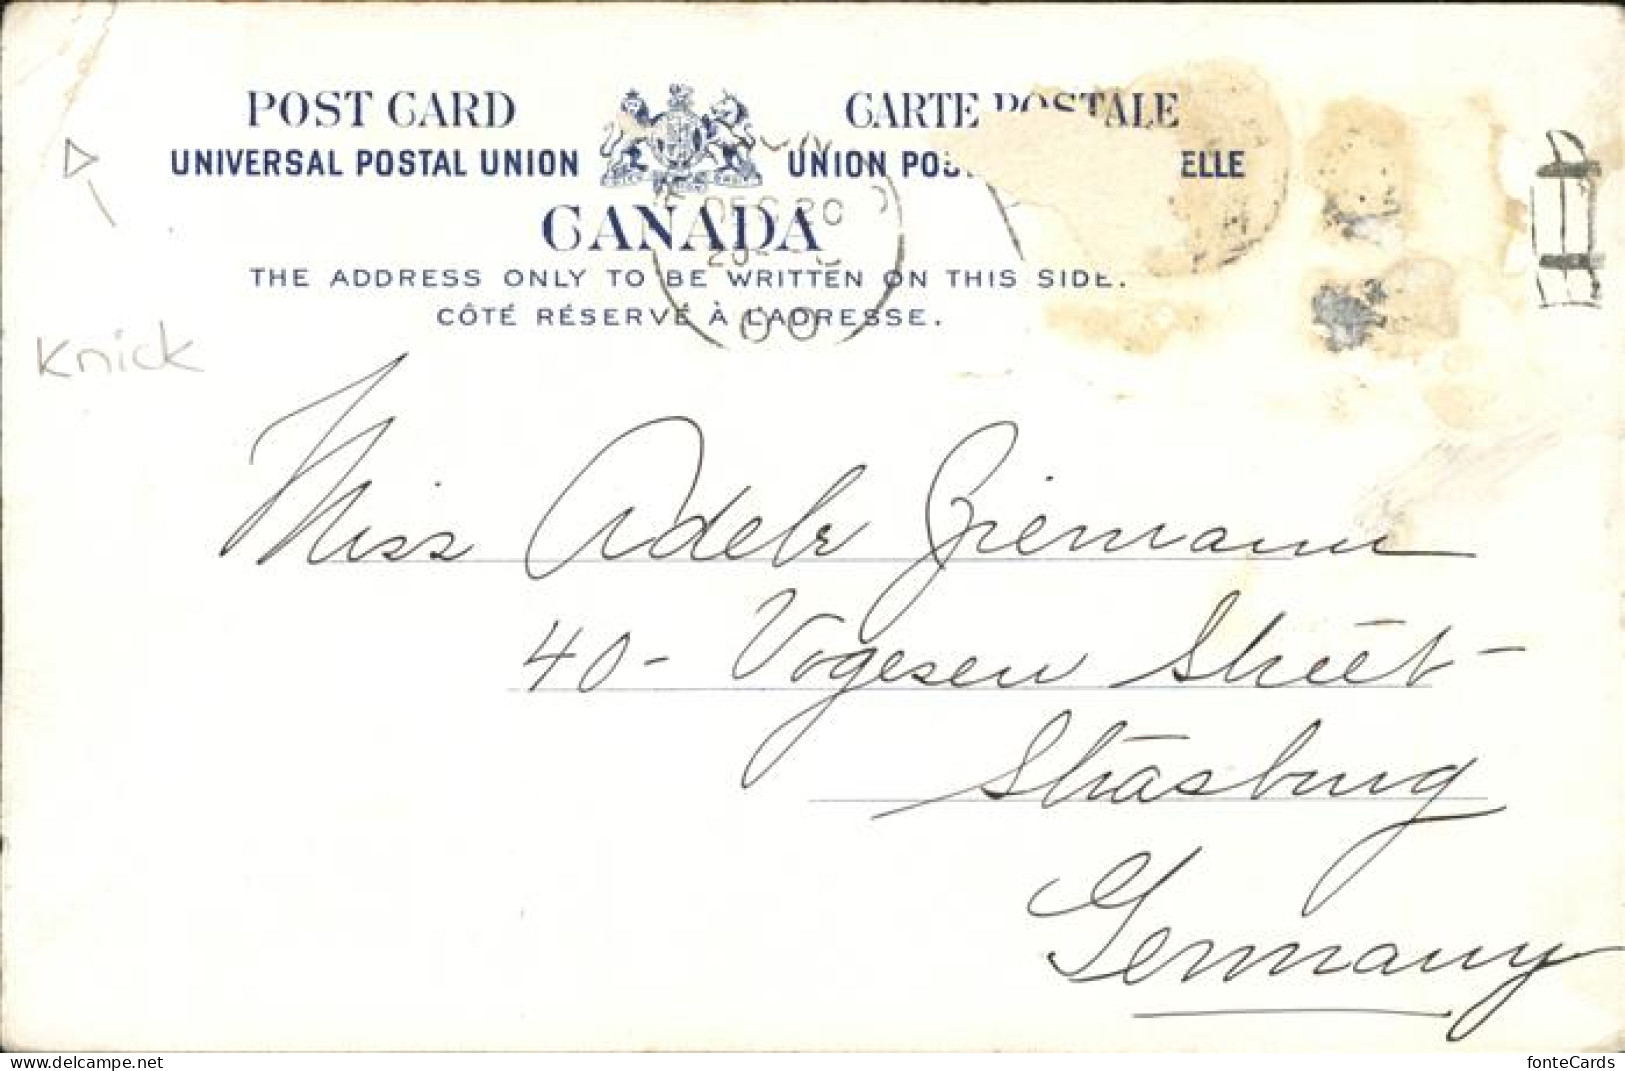 POST CARD
CARTE POSTALE
UNIVERSAL POSTAL UNION
UNION ELLE
CANADA
THE ADDRESS ONLY TO BE WRITTEN ON THIS SIDE.
CÔTÉ RÉSERVÉ À L'ADRESSE.
Knick
Miss Adele Ziemann
40 - Vogesen Street -
Strasburg
Germany
www.delcampe.net
fonteCards